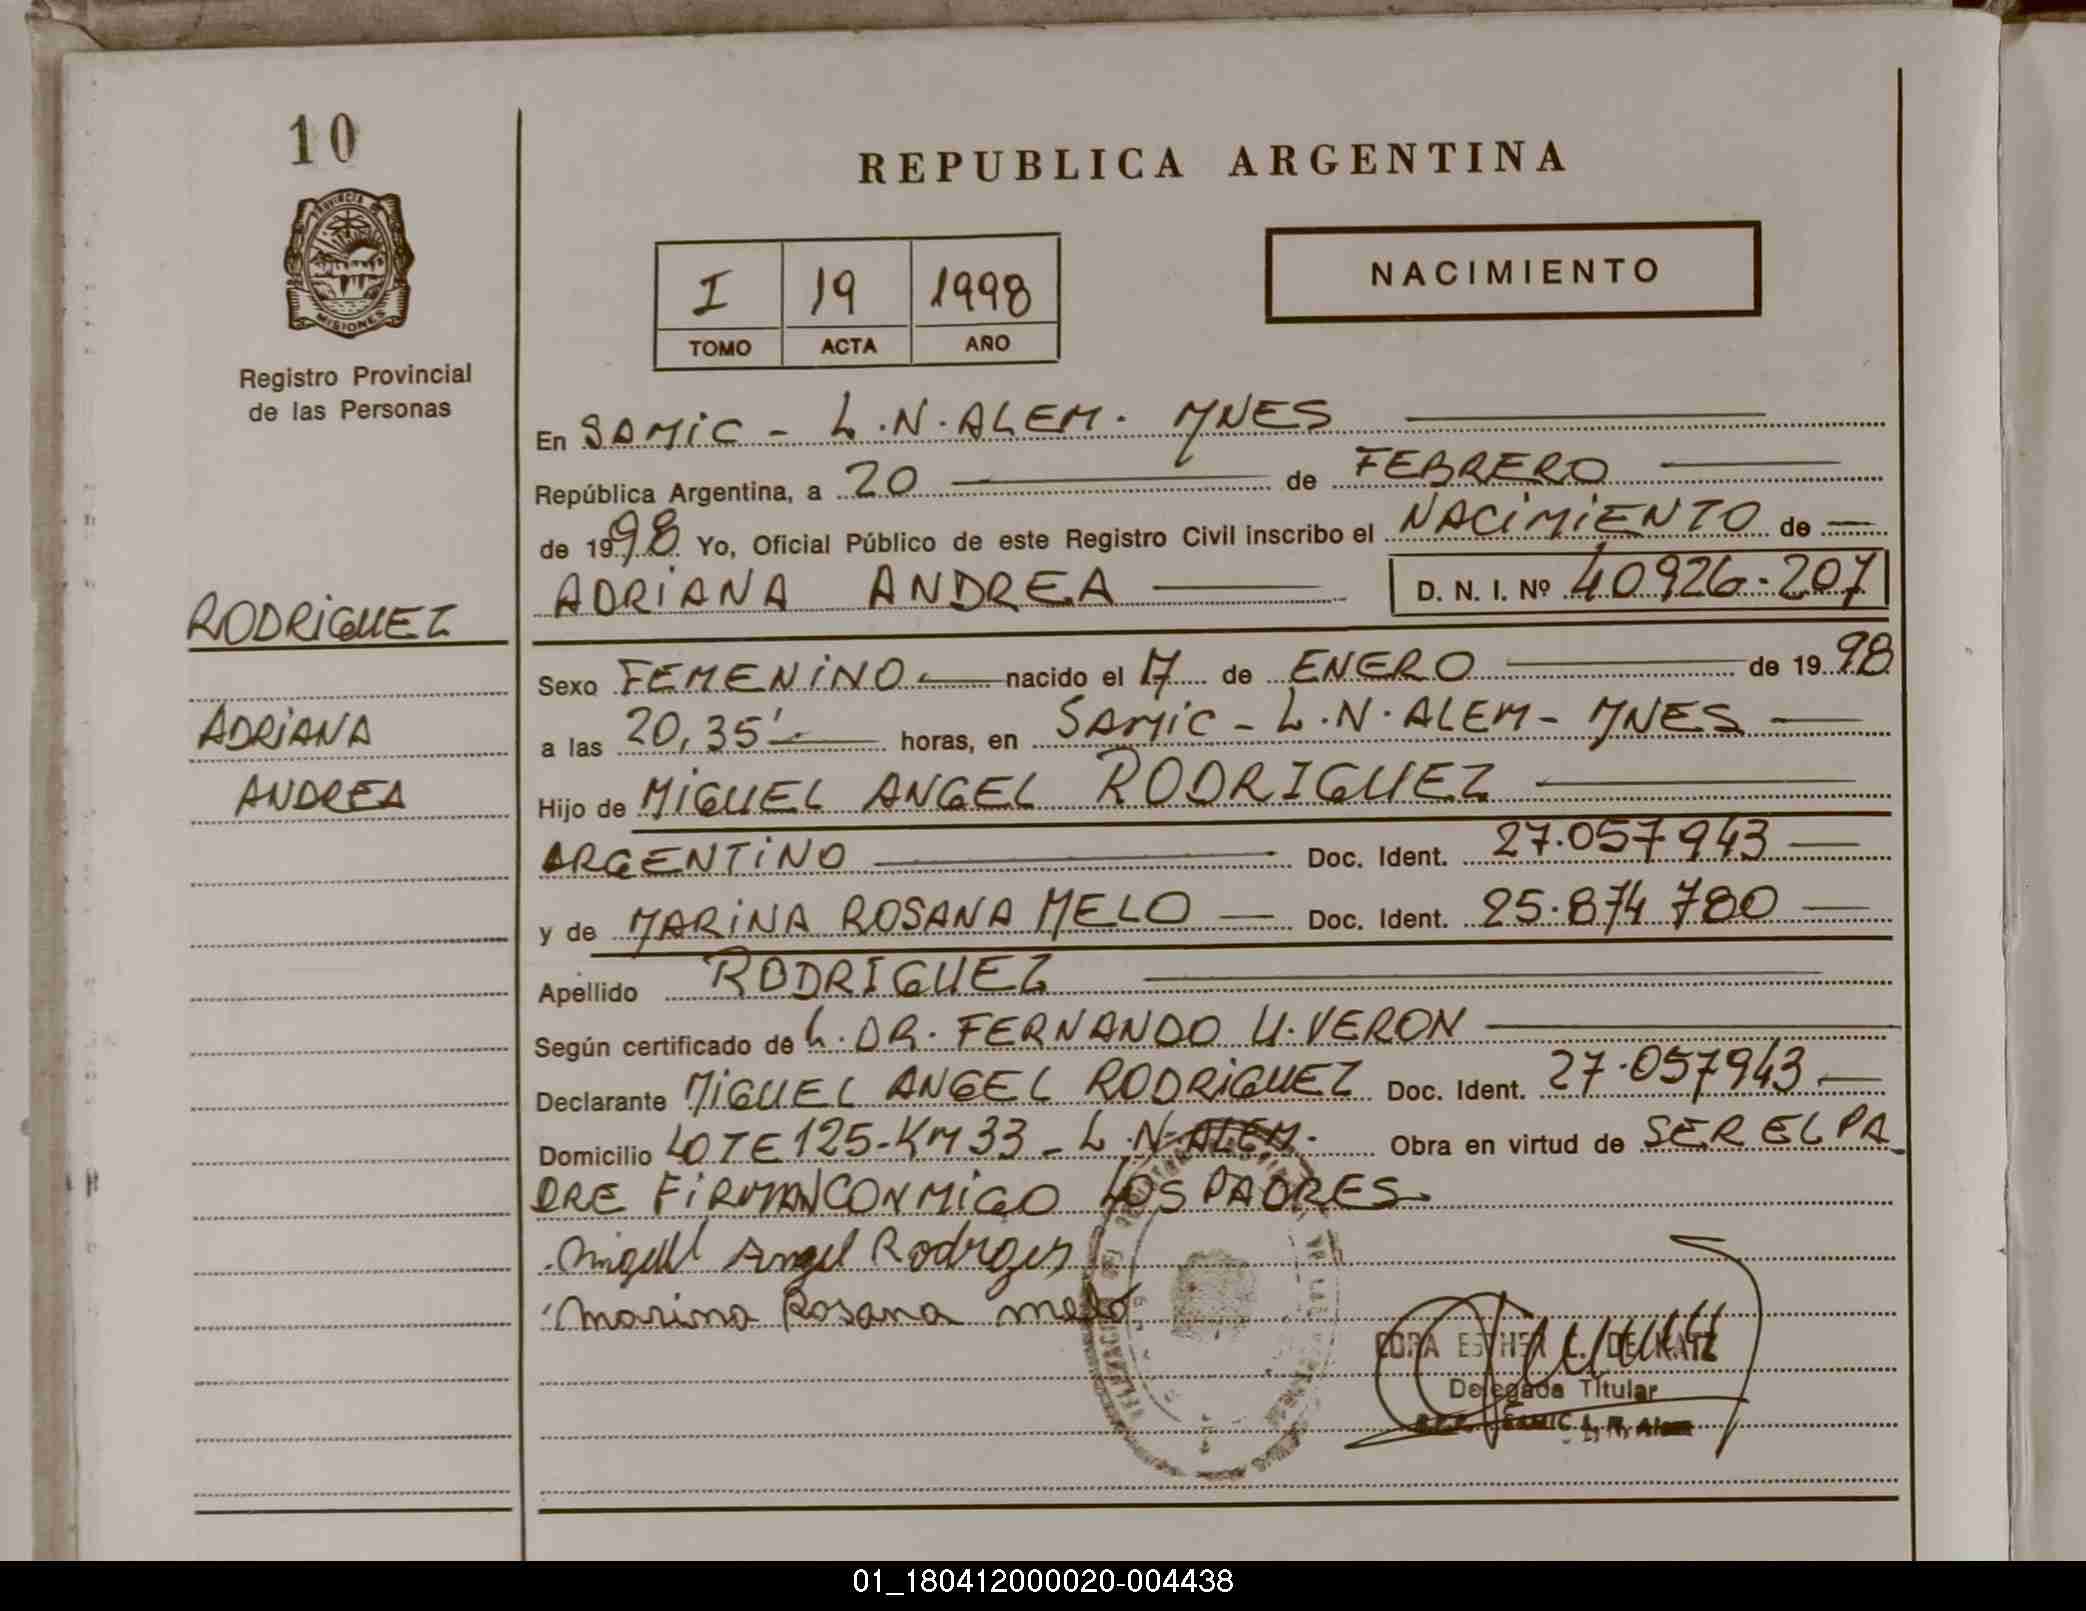 10
PROVINCIA DE
MISIONES
Registro Provincial
de las Personas
RODRIGUEZ
ADRIANA
ANDREA
REPUBLICA ARGENTINA
I 19 1998
TOMO ACTA AÑO
NACIMIENTO
En SAMIC - L.N.ALEM. MNES
República Argentina, a 20 de FEBRERO
de 1998 Yo, Oficial Público de este Registro Civil inscribo el NACIMIENTO de
ADRIANA ANDREA D. N. I. Nº 40926.207
Sexo FEMENINO nacido el 17 de ENERO de 1998
a las 20,35' horas, en SAMIC - L.N.ALEM - MNES
Hijo de MIGUEL ANGEL RODRIGUEZ
ARGENTINO Doc. Ident. 27.057943
y de MARINA ROSANA MELO Doc. Ident. 25.874780
Apellido RODRIGUEZ
Según certificado de L. DR. FERNANDO U. VERON
Declarante MIGUEL ANGEL RODRIGUEZ Doc. Ident. 27.057943
Domicilio LOTE 125-KM 33 - L.N-ALEM. Obra en virtud de SER EL PA
DRE FIRMAN CONMIGO LOS PADRES
Angel
Marina Rosana melo
DE KATZ
Delegada Titular
SAMIC L. N. Alem
01_180412000020-004438